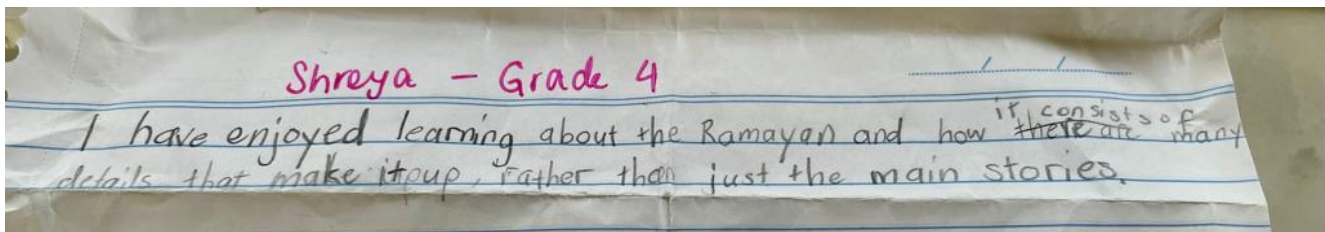 Shreya - Grade 4
I have enjoyed learning about the Ramayan and how it consists of many
details that make it up, rather than just the main stories.